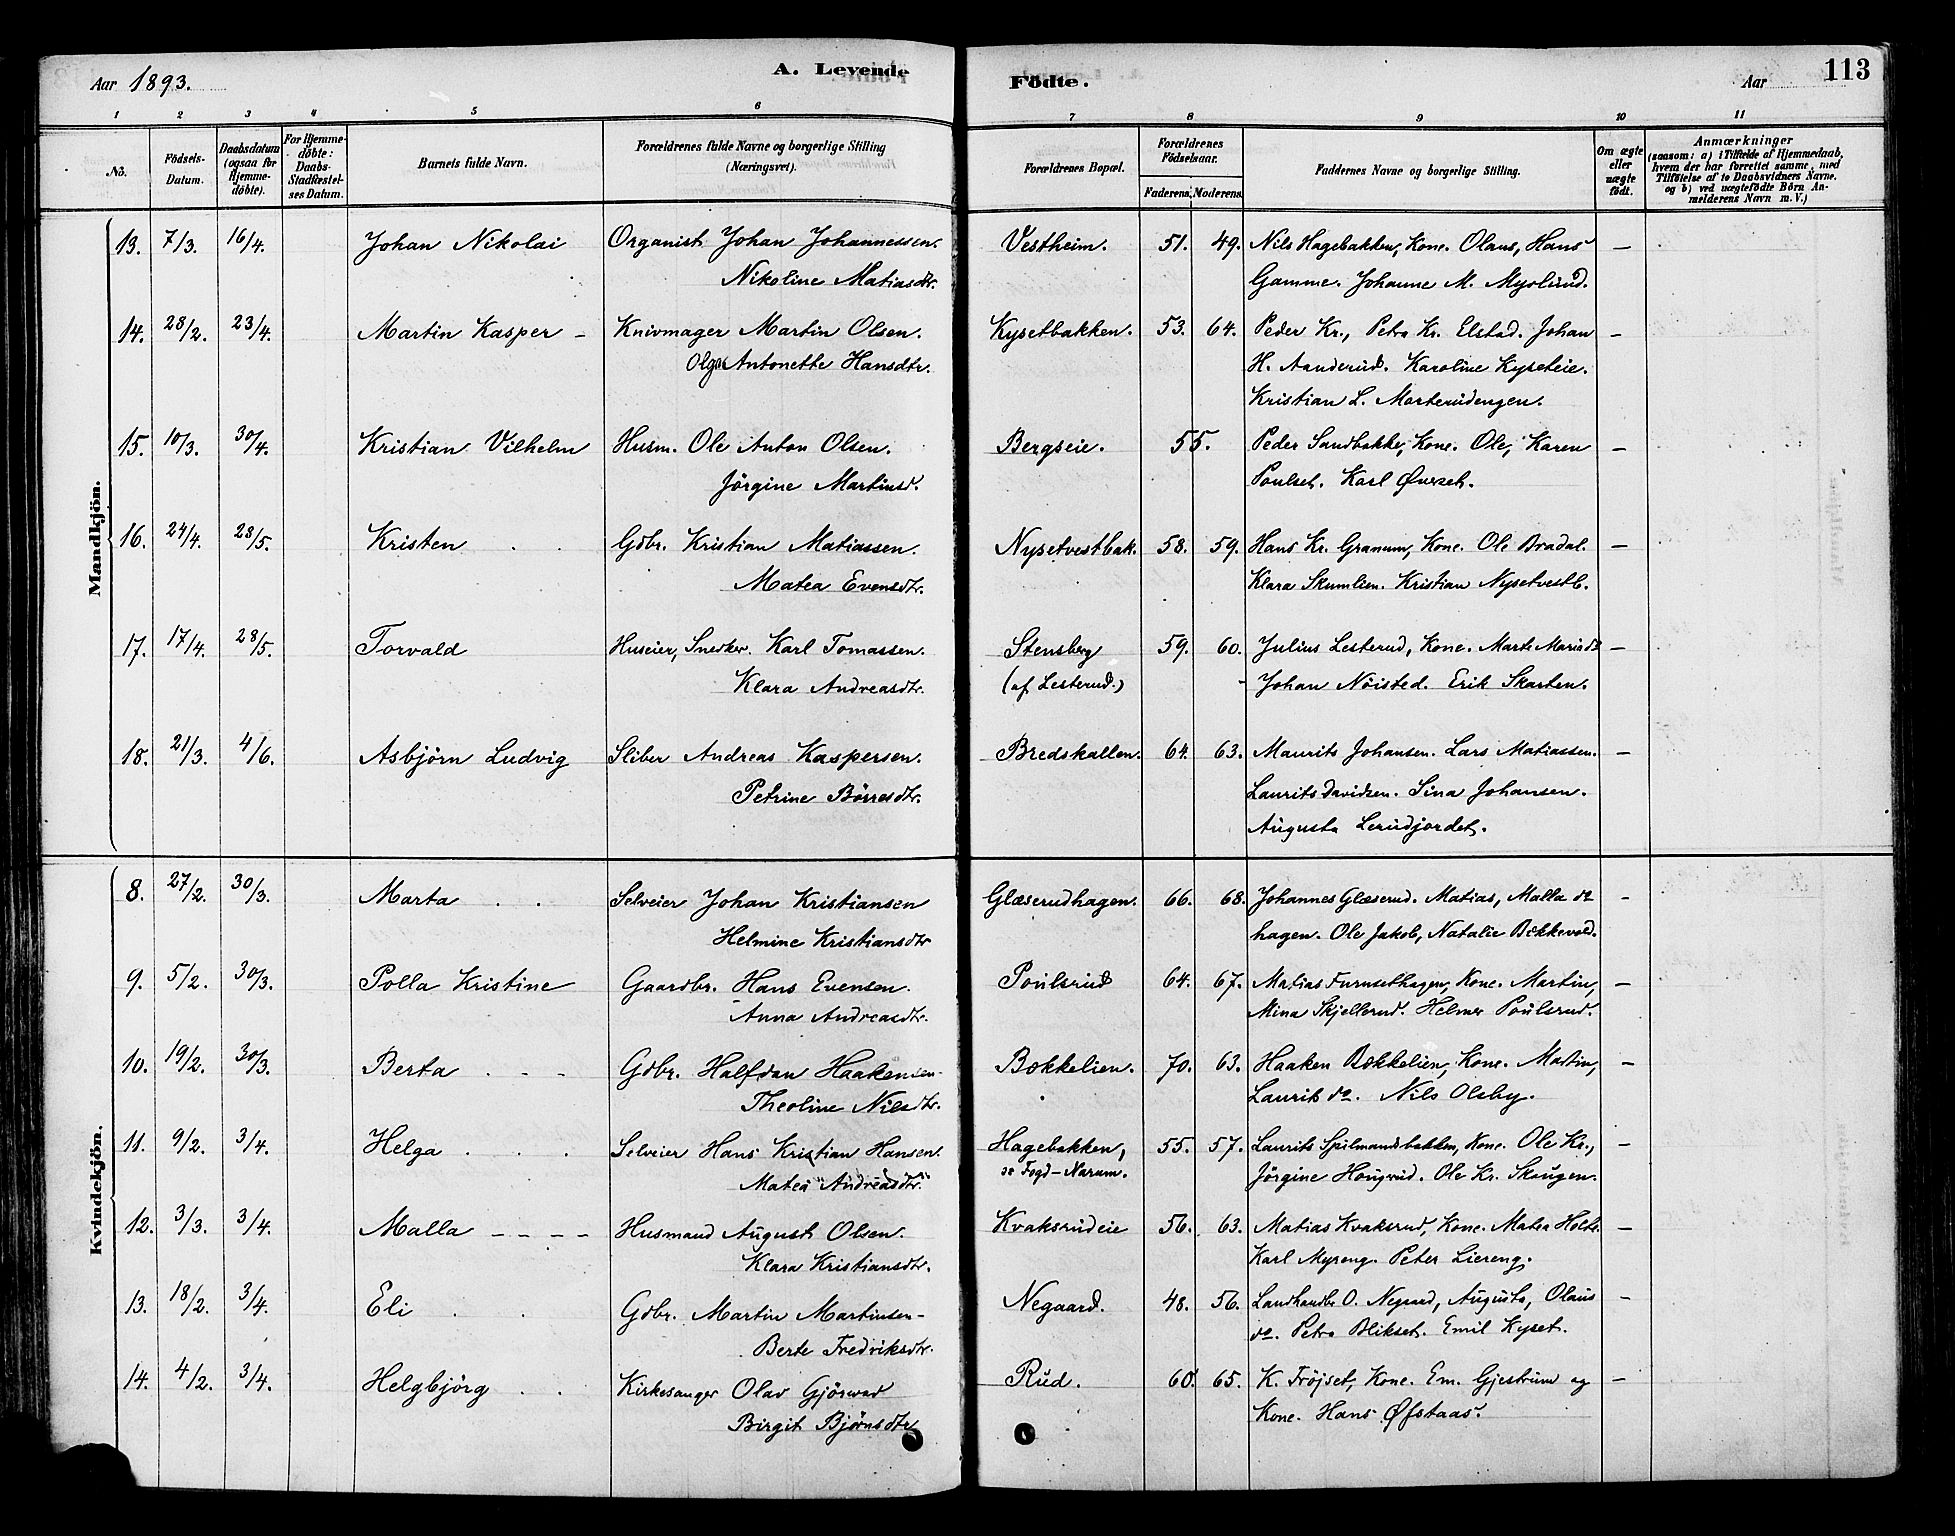 Aar 1893.
A. Levende
Födte.
Aar
113
1 2 3 4 5 6 7 8 9 10 11
No.
Födsels-Datum.
Daabsdatum (ogsaa for Hjemme-döbte).
For Hjemme-döbte: Daabs-Stadfæstel-ses Datum.
Barnets fulde Navn.
Forældrenes fulde Navne og borgerlige Stilling (Næringsvei).
Forældrenes Bopæl.
Forældrenes Födselsaar.
Faderens. Moderens.
Faddernes Navne og borgerlige Stilling.
Om ægte eller uægte födt.
Anmærkninger (saasom: a) i Tilfælde af Hjemmedaab, hvem der har forrettet samme, med Tilföielse af to Daabsvidners Navne. og b) ved uægtefödte Börn An-melderens Navn m. V.)
Mandkjön.
13. 7/3. 16/4. Johan Nikolai Organist Johan Johannessen. Vestheim. 51. 49. Nils Hagebakken, Kone. Olaus, Hans –
Nikoline Matiasdtr. Gamme. Johanne M. Myslund.
14. 28/2. 23/4. Martin Kasper – Knivmager Martin Olsen. Kysetbakken. 53. 64. Peder Kr., Petra Kr. Elstad. Johan –
Olga Antonette Hansdtr. H. Aanderud. Karoline Kyseteie.
Kristian L. Morterudengen.
15. 10/3. 30/4. Kristian Vilhelm Husm. Ole Anton Olsen. Bergseie. 55. Peder Sandbakke, Kone. Ole, Karen –
Jörgine Martinsd. Poulset. Karl Øverset.
16. 24/4. 28/5. Kristen Gdbr. Kristian Matiassen. Nysetvestbak. 58. 59. Hans Kr. Granum, Kone. Ole Bradal. –
Matea Evensdtr. Klara Skumlien. Kristian Nysetvestb.
17. 17/4. 28/5. Torvald Huseier, Snedker. Karl Tomassen. Stensberg 59. 60. Julius Lesterud, Kone. Marte Maria do –
Klara Andreasdtr. (af Lesterud.) Johan Nöisted. Erik Skarten.
18. 21/3. 4/6. Asbjörn Ludvig Sliber Andreas Kaspersen. Bredskallen. 64. 63. Maurits Johansen. Lars Matiassen. –
Petrine Börresdtr. Laurits Davidsen. Sina Johansen.
Augusta Lerudjordet.
Kvindekjön.
8. 27/2. 30/3. Marta Selveier Johan Kristiansen Glæserudhagen. 66. 68. Johannes Glæserud. Matias, Malla do –
Helmine Kristiansdtr hagen. Ole Jakob, Natalie Bækkevold.
9. 5/2. 30/3. Polla Kristine Gaardbr. Hans Evensen. Poulsrud 64. 67. Matias Furusethagen, Kone. Martin, –
Anna Andreasdtr. Mina Skjellerud. Helmer Poulsrud.
10. 19/2. 30/3. Berta Gdbr. Halfdan Haakensen. Bækkelien. 70. 63. Haaken Bækkelien, Kone. Martin, –
Theoline Nilsdtr. Laurits do. Nils Olsby.
11. 9/2. 3/4. Helga Selveier Hans Kristian Hansen. Hagebakken, 55. 57. Laurits Spilmandsbakken, Kone. Ole Kr., –
Matea Andreasdtr. se Fogd-Naram. Jörgine Hougrud. Ole Kr. Skougen.
12. 3/3. 3/4. Malla Husmand August Olsen. Kvaksrudeie 56. 63. Matias Kvaksrud, Kone. Matea Holte. –
Klara Kristiansdtr. Karl Myreng. Peter Liereng.
13. 18/2. 3/4. Eli Gdbr. Martin Martinsen Negaard. 48. 56. Landhandler O. Negaard, Augusta, Olaus –
Berte Fredriksdtr. do. Petra Blikset. Emil Kyset.
14. 4/2. 3/4. Helgbjörg Kirkesanger Olav Gjörwad Rud. 60. 65. K. Fröjset, Kone. Em. Gjestrum og –
Birgit Bjørnsdtr Kone. Hans Øfstaas.